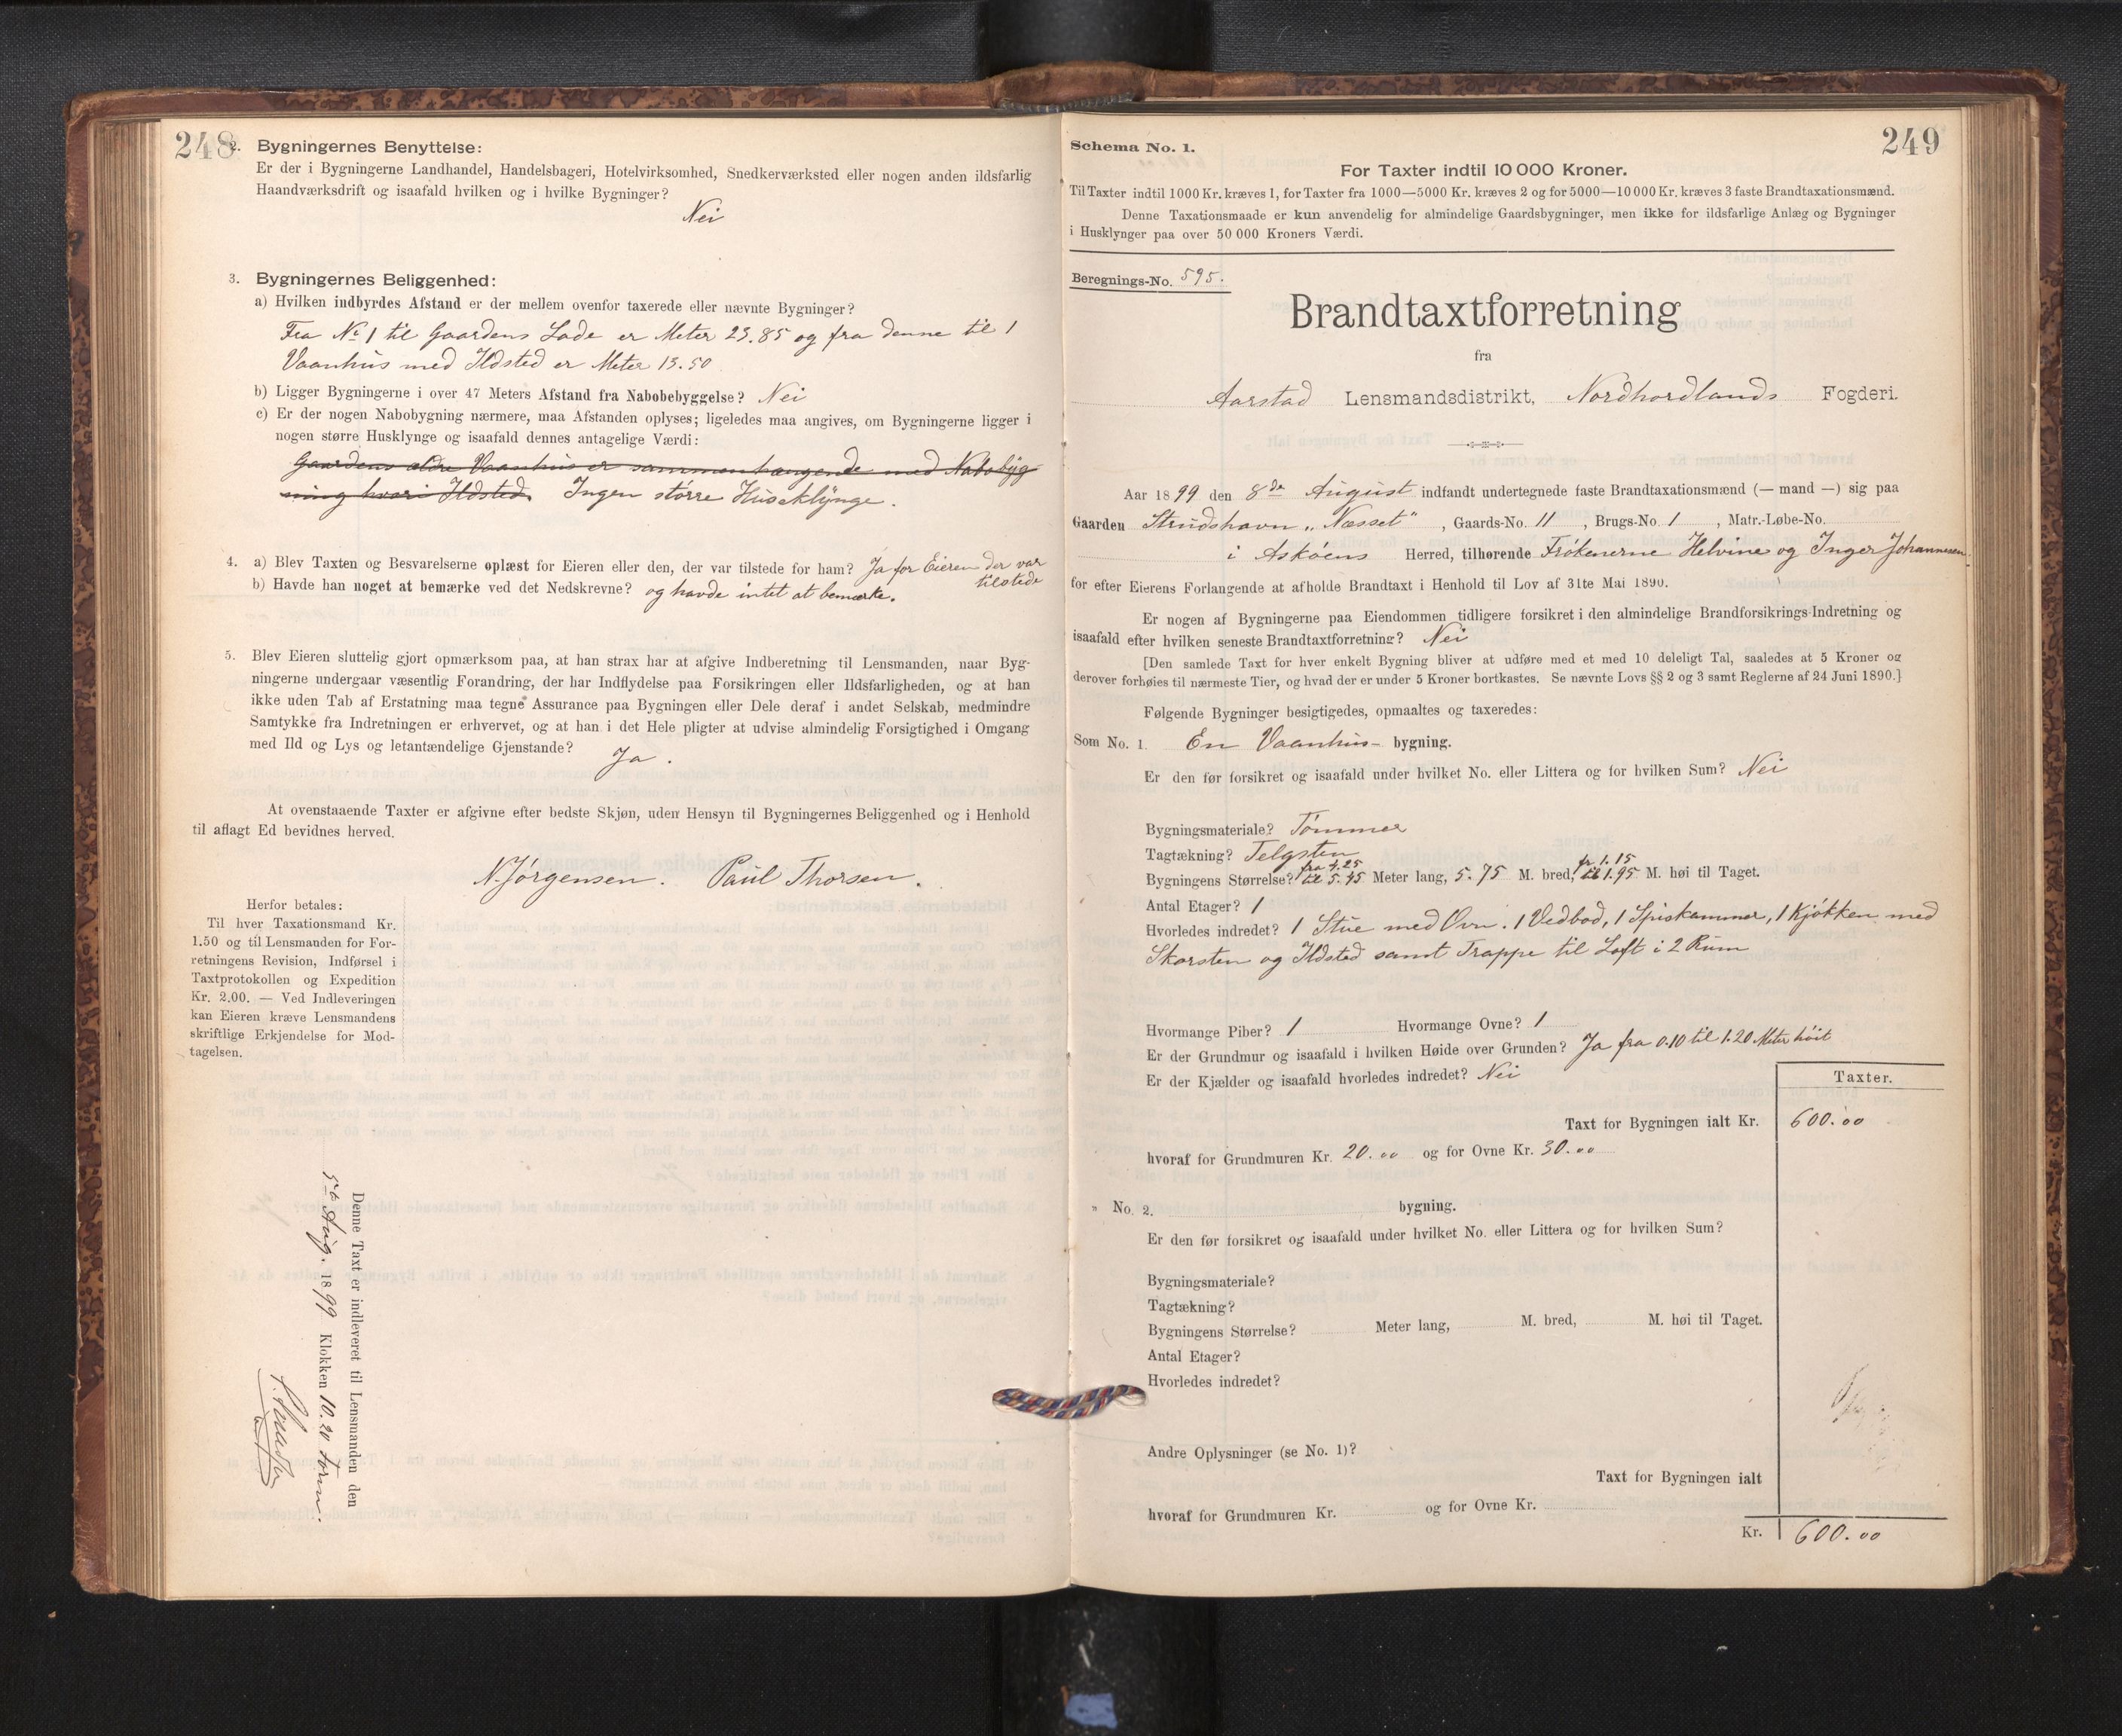 248
2. Bygningernes Benyttelse:
Er der i Bygningerne Landhandel, Handelsbageri, Hotelvirksomhed, Snedkerværksted eller nogen anden ildsfarlig
Haandværksdrift og isaafald hvilken og i hvilke Bygninger?
Nei
3. Bygningernes Beliggenhed:
a) Hvilken indbyrdes Afstand er der mellem ovenfor taxerede eller nævnte Bygninger?
Fra No 1 til Gaardens Lade er Meter 23.85 og fra denne til 1
Vaanhus med Ildsted er Meter 13.50
b) Ligger Bygningerne i over 47 Meters Afstand fra Nabobebyggelse? Nei
c) Er der nogen Nabobygning nærmere, maa Afstanden oplyses; ligeledes maa angives, om Bygningerne ligger i
nogen større Husklynge og isaafald dennes antagelige Værdi:
Gaardens ældre Vaanhus er sammenhængende med Nabobyg
ning hvori Ildsted. Ingen større Huseklynge.
4. a) Blev Taxten og Besvarelserne oplæst for Eieren eller den, der var tilstede for ham? Ja for Eieren der var
tilstede
b) Havde han noget at bemærke ved det Nedskrevne? og havde intet at bemærke.
5. Blev Eieren sluttelig gjort opmærksom paa, at han strax har at afgive Indberetning til Lensmanden, naar Byg-
ningerne undergaar væsentlig Forandring, der har Indflydelse paa Forsikringen eller Ildsfarligheden, og at han
ikke uden Tab af Erstatning maa tegne Assurance paa Bygningen eller Dele deraf i andet Selskab, medmindre
Samtykke fra Indretningen er erhvervet, og at han i det Hele pligter at udvise almindelig Forsigtighed i Omgang
med Ild og Lys og letantændelige Gjenstande? Ja.
At ovenstaaende Taxter er afgivne efter bedste Skjøn, uden Hensyn til Bygningernes Beliggenhed og i Henhold
til aflagt Ed bevidnes herved.
N. Jørgensen. Paul Thorsen.
Herfor betales:
Til hver Taxationsmand Kr.
1.50 og til Lensmanden for For-
retningens Revision, Indførsel i
Taxtprotokollen og Expedition
Kr. 2.00. — Ved Indleveringen
kan Eieren kræve Lensmandens
skriftlige Erkjendelse for Mod-
tagelsen.
Denne Taxt er indleveret til Lensmanden den
Aug. 1899 Klokken 10.20 Form.
249
Schema No. 1.
For Taxter indtil 10 000 Kroner.
Til Taxter indtil 1000 Kr. kræves 1, for Taxter fra 1000—5000 Kr. kræves 2 og for 5000—10 000 Kr. kræves 3 faste Brandtaxationsmænd.
Denne Taxationsmaade er kun anvendelig for almindelige Gaardsbygninger, men ikke for ildsfarlige Anlæg og Bygninger
i Husklynger paa over 50 000 Kroners Værdi.
Beregnings-No. 595.
Brandtaxtforretning
fra
Aarstad Lensmandsdistrikt, Nordhordlands Fogderi.
Aar 1899 den 8de August indfandt undertegnede faste Brandtaxationsmænd (— mand —) sig paa
Gaarden Strudshavn „Næsset", Gaards-No. 11, Brugs-No. 1, Matr.-Løbe-No.
i Askøens Herred, tilhørende Frøkenerne Helvine og Inger Johannesen
for efter Eierens Forlangende at afholde Brandtaxt i Henhold til Lov af 31te Mai 1890.
Er nogen af Bygningerne paa Eiendommen tidligere forsikret i den almindelige Brandforsikrings-Indretning og
isaafald efter hvilken seneste Brandtaxtforretning? Nei
[Den samlede Taxt for hver enkelt Bygning bliver at udføre med et med 10 deleligt Tal, saaledes at 5 Kroner og
derover forhøies til nærmeste Tier, og hvad der er under 5 Kroner bortkastes. Se nævnte Lovs §§ 2 og 3 samt Reglerne af 24 Juni 1890.]
Følgende Bygninger besigtigedes, opmaaltes og taxeredes:
Som No. 1. En Vaanhus- bygning.
Er den før forsikret og isaafald under hvilket No. eller Littera og for hvilken Sum? Nei
Bygningsmateriale? Tømmer
Tagtækning? Telgsten
Bygningens Størrelse? fra 4.25 til 5.45 Meter lang, 5.75 M. bred, fr 1.15 til 1.95 M. høi til Taget.
Antal Etager? 1
Hvorledes indredet? 1 Stue med Ovn. 1 Vedbod, 1 Spiskammer, 1 Kjøkken med
Skorsten og Ildsted samt Trappe til Loft i 2 Rum
Hvormange Piber? 1 Hvormange Ovne? 1
Er der Grundmur og isaafald i hvilken Høide over Grunden? Ja fra 0.10 til 1.20 Meter høit
Er der Kjælder og isaafald hvorledes indredet? Nei
Taxter.
Taxt for Bygningen ialt Kr. 600.00
hvoraf for Grundmuren Kr. 20.00 og for Ovne Kr. 30.00
" No. 2. bygning.
Er den før forsikret og isaafald under hvilket No. eller Littera og for hvilken Sum?
Bygningsmateriale?
Tagtækning?
Bygningens Størrelse? Meter lang, M. bred, M. høi til Taget.
Antal Etager?
Hvorledes indredet?
Andre Oplysninger (se No. 1)?
Taxt for Bygningen ialt
hvoraf for Grundmuren Kr. og for Ovne Kr.
Kr. 600.00